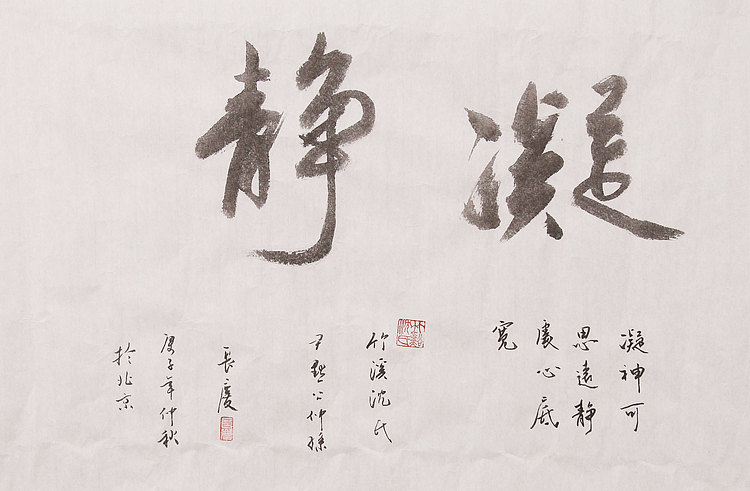 凝静
凝神可
思遠静
處心底
寬
竹溪沈氏
尹默公仲孫
長慶
庚子年仲秋
於北京